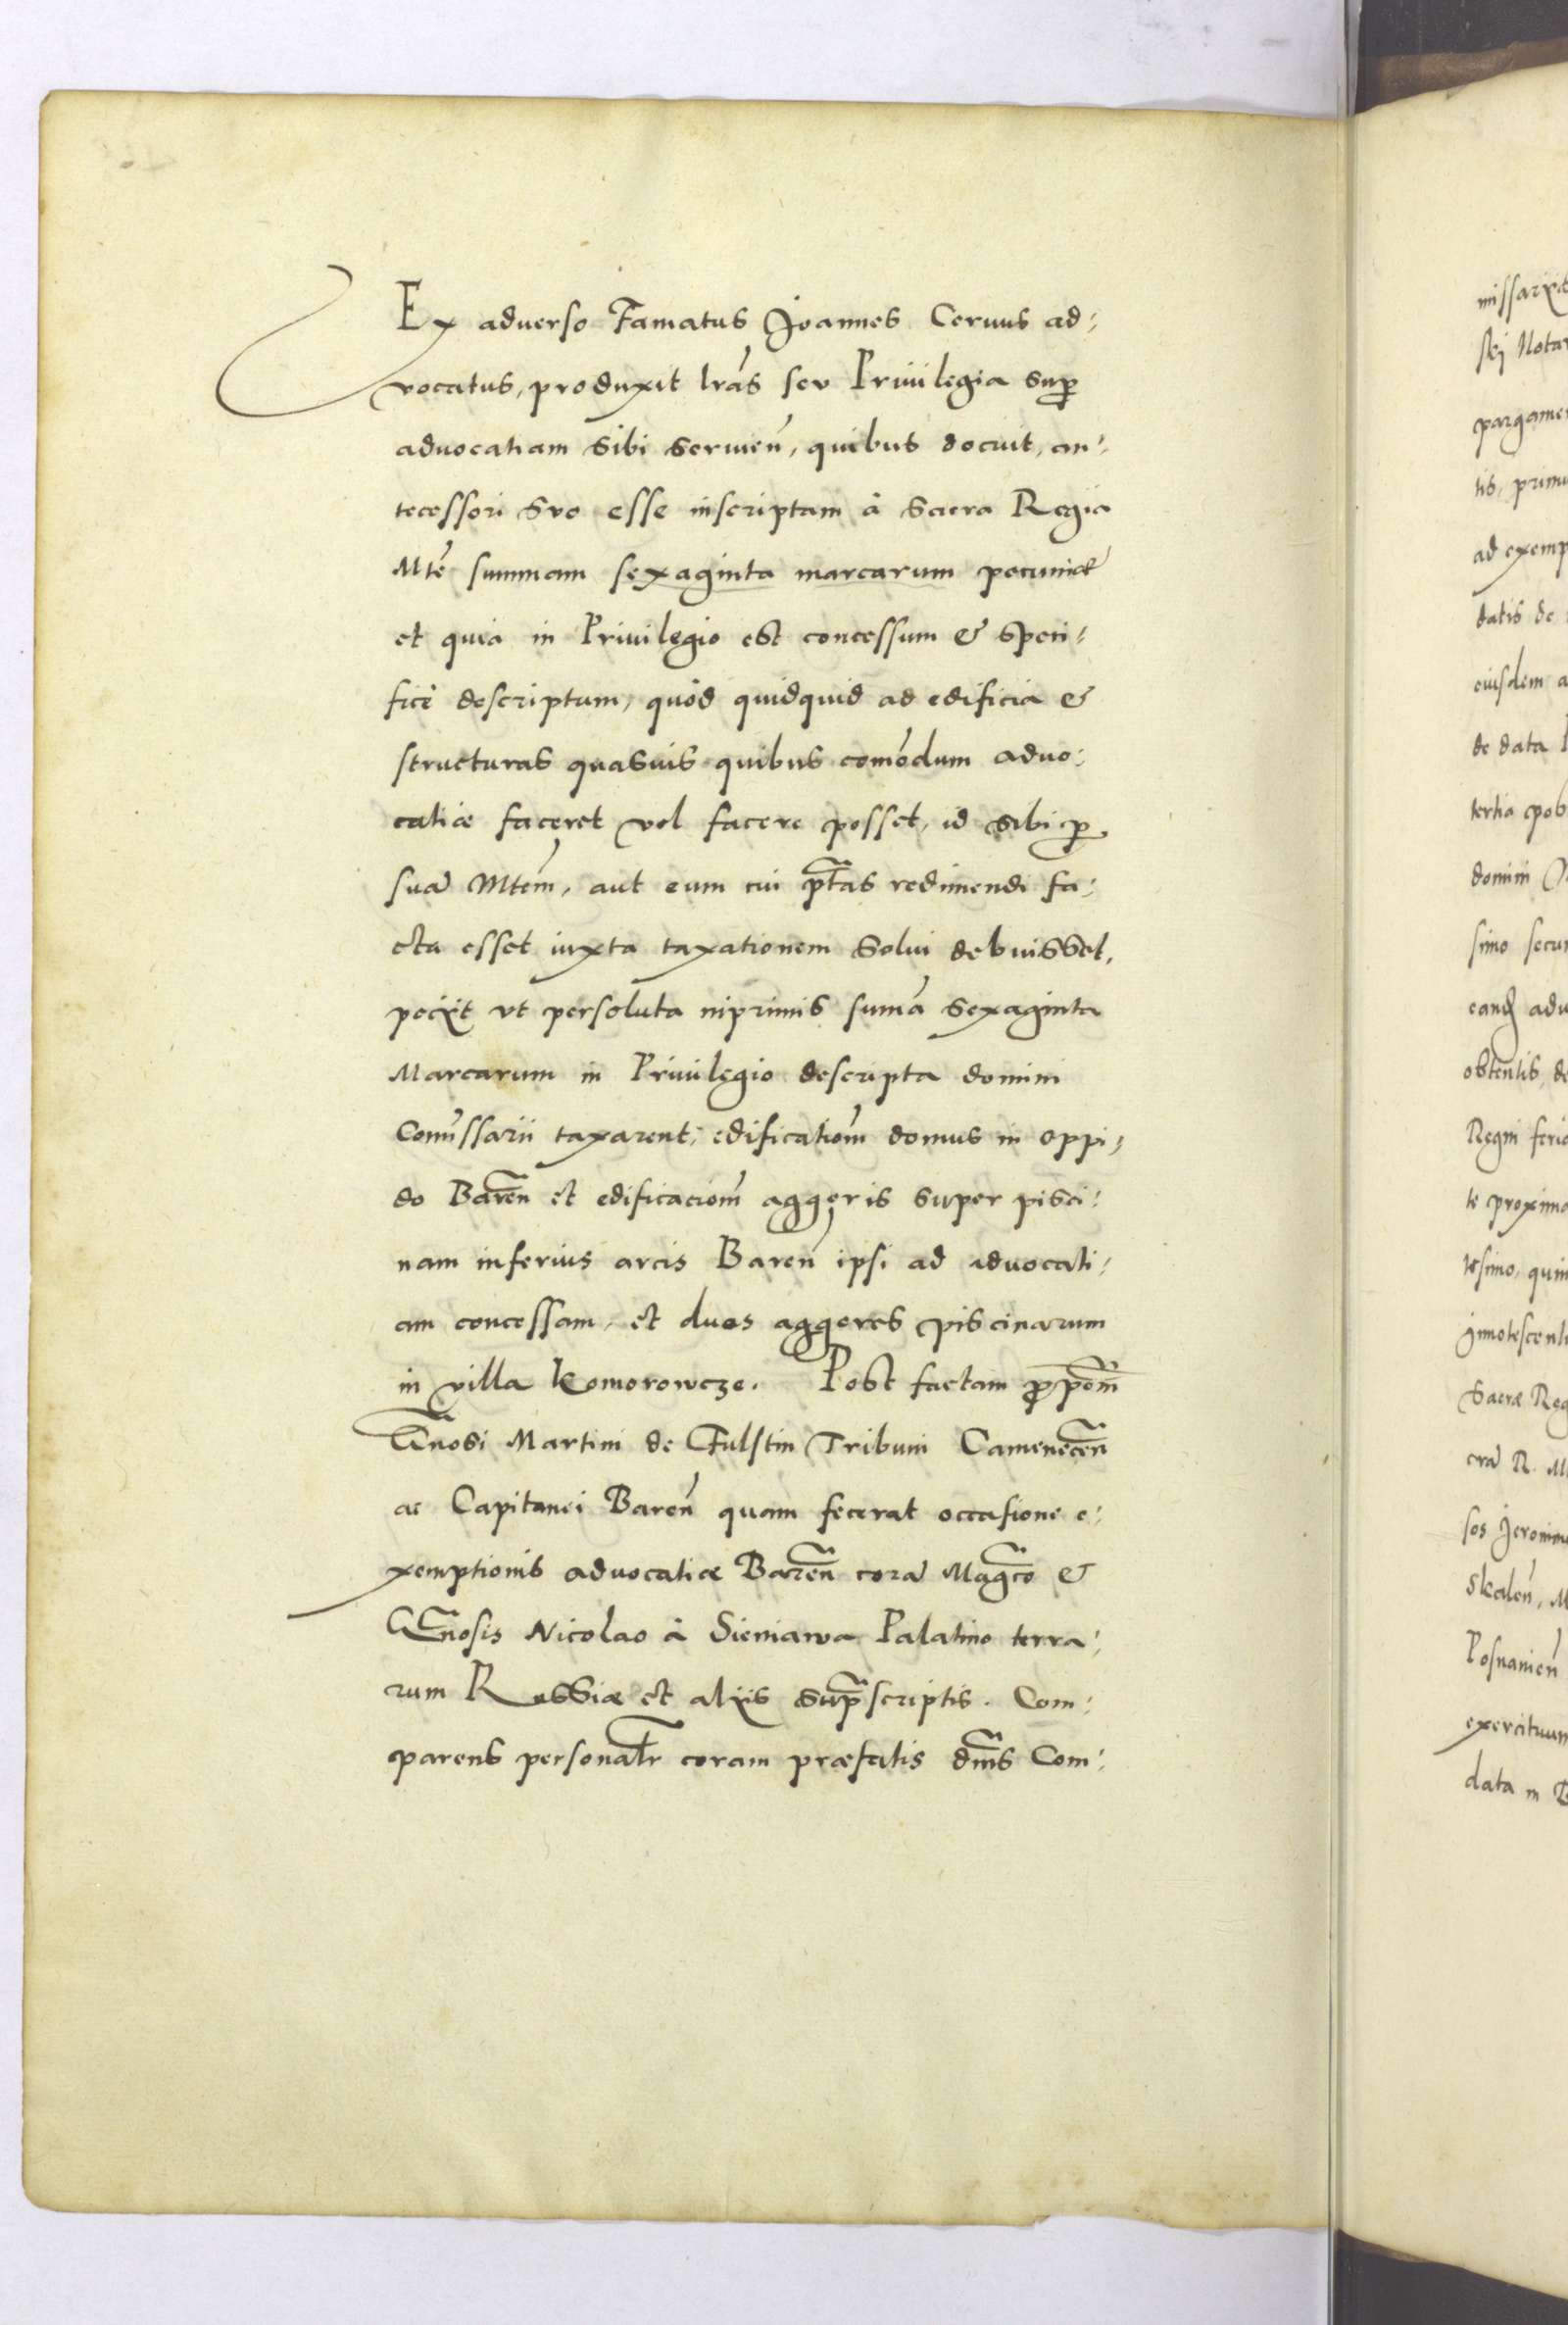 Ex aduerso Famatus Joannes Ceruus ad:
vocatus, produxit lrãs seu Priuilegia sup
aduocatiam sibi seruieñ, quibus docuit, an:
tecessori suo esse inscriptam à Sacra Regia
Mtẽ summam sexaginta marcarum pecuniæ
et quia in Priuilegio est concessum & speci:
ficè descriptum, quòd quidquid ad edificia &
structuras quasuis quibus comõdum aduo:
catiæ faceret vel facere posset, id sibi p
suã Mtẽm, aut eum cui ptãs redimendi fa:
cta esset iuxta taxationem solui debuisset,
petijt vt persoluta inprimis sumã sexaginta
Marcarum in Priuilegio descripta domini
Comissarii taxarent, edificatiom̃ domus in oppi:
do Bareñ et edificaciom̃ aggeris super pisci:
nam inferius arcis Bareñ ipsi ad aduocati:
am concessam, et duos aggeres piscinarum
in villa Komorowcze. Post factam ppom̃
Gnosi Martini de Fulstin Tribuni Cameneceñ
ac Capitanei Bareñ quam fecerat occasione e:
xemptionis aduocatiæ Bareñ corã Magco &
Gnosis Nicolao à Sieniawa Palatino terra:
rum Russiæ et alijs supscriptis. Com:
parens personalr coram præfatis dnis Com:
missarijs
sej Nota
pargame
tis, prim
ad exemp
datis de
eiusdem a
de data
tertia pob
domini
simo secu
eand adu
obtentis, de
Regni feri
te proximo
tesimo, quin
gnotescent
Sacræ Reg
crã R. M
sos Jeronim
Skaleñ, M
Posnanieñ
exercituum
data in B